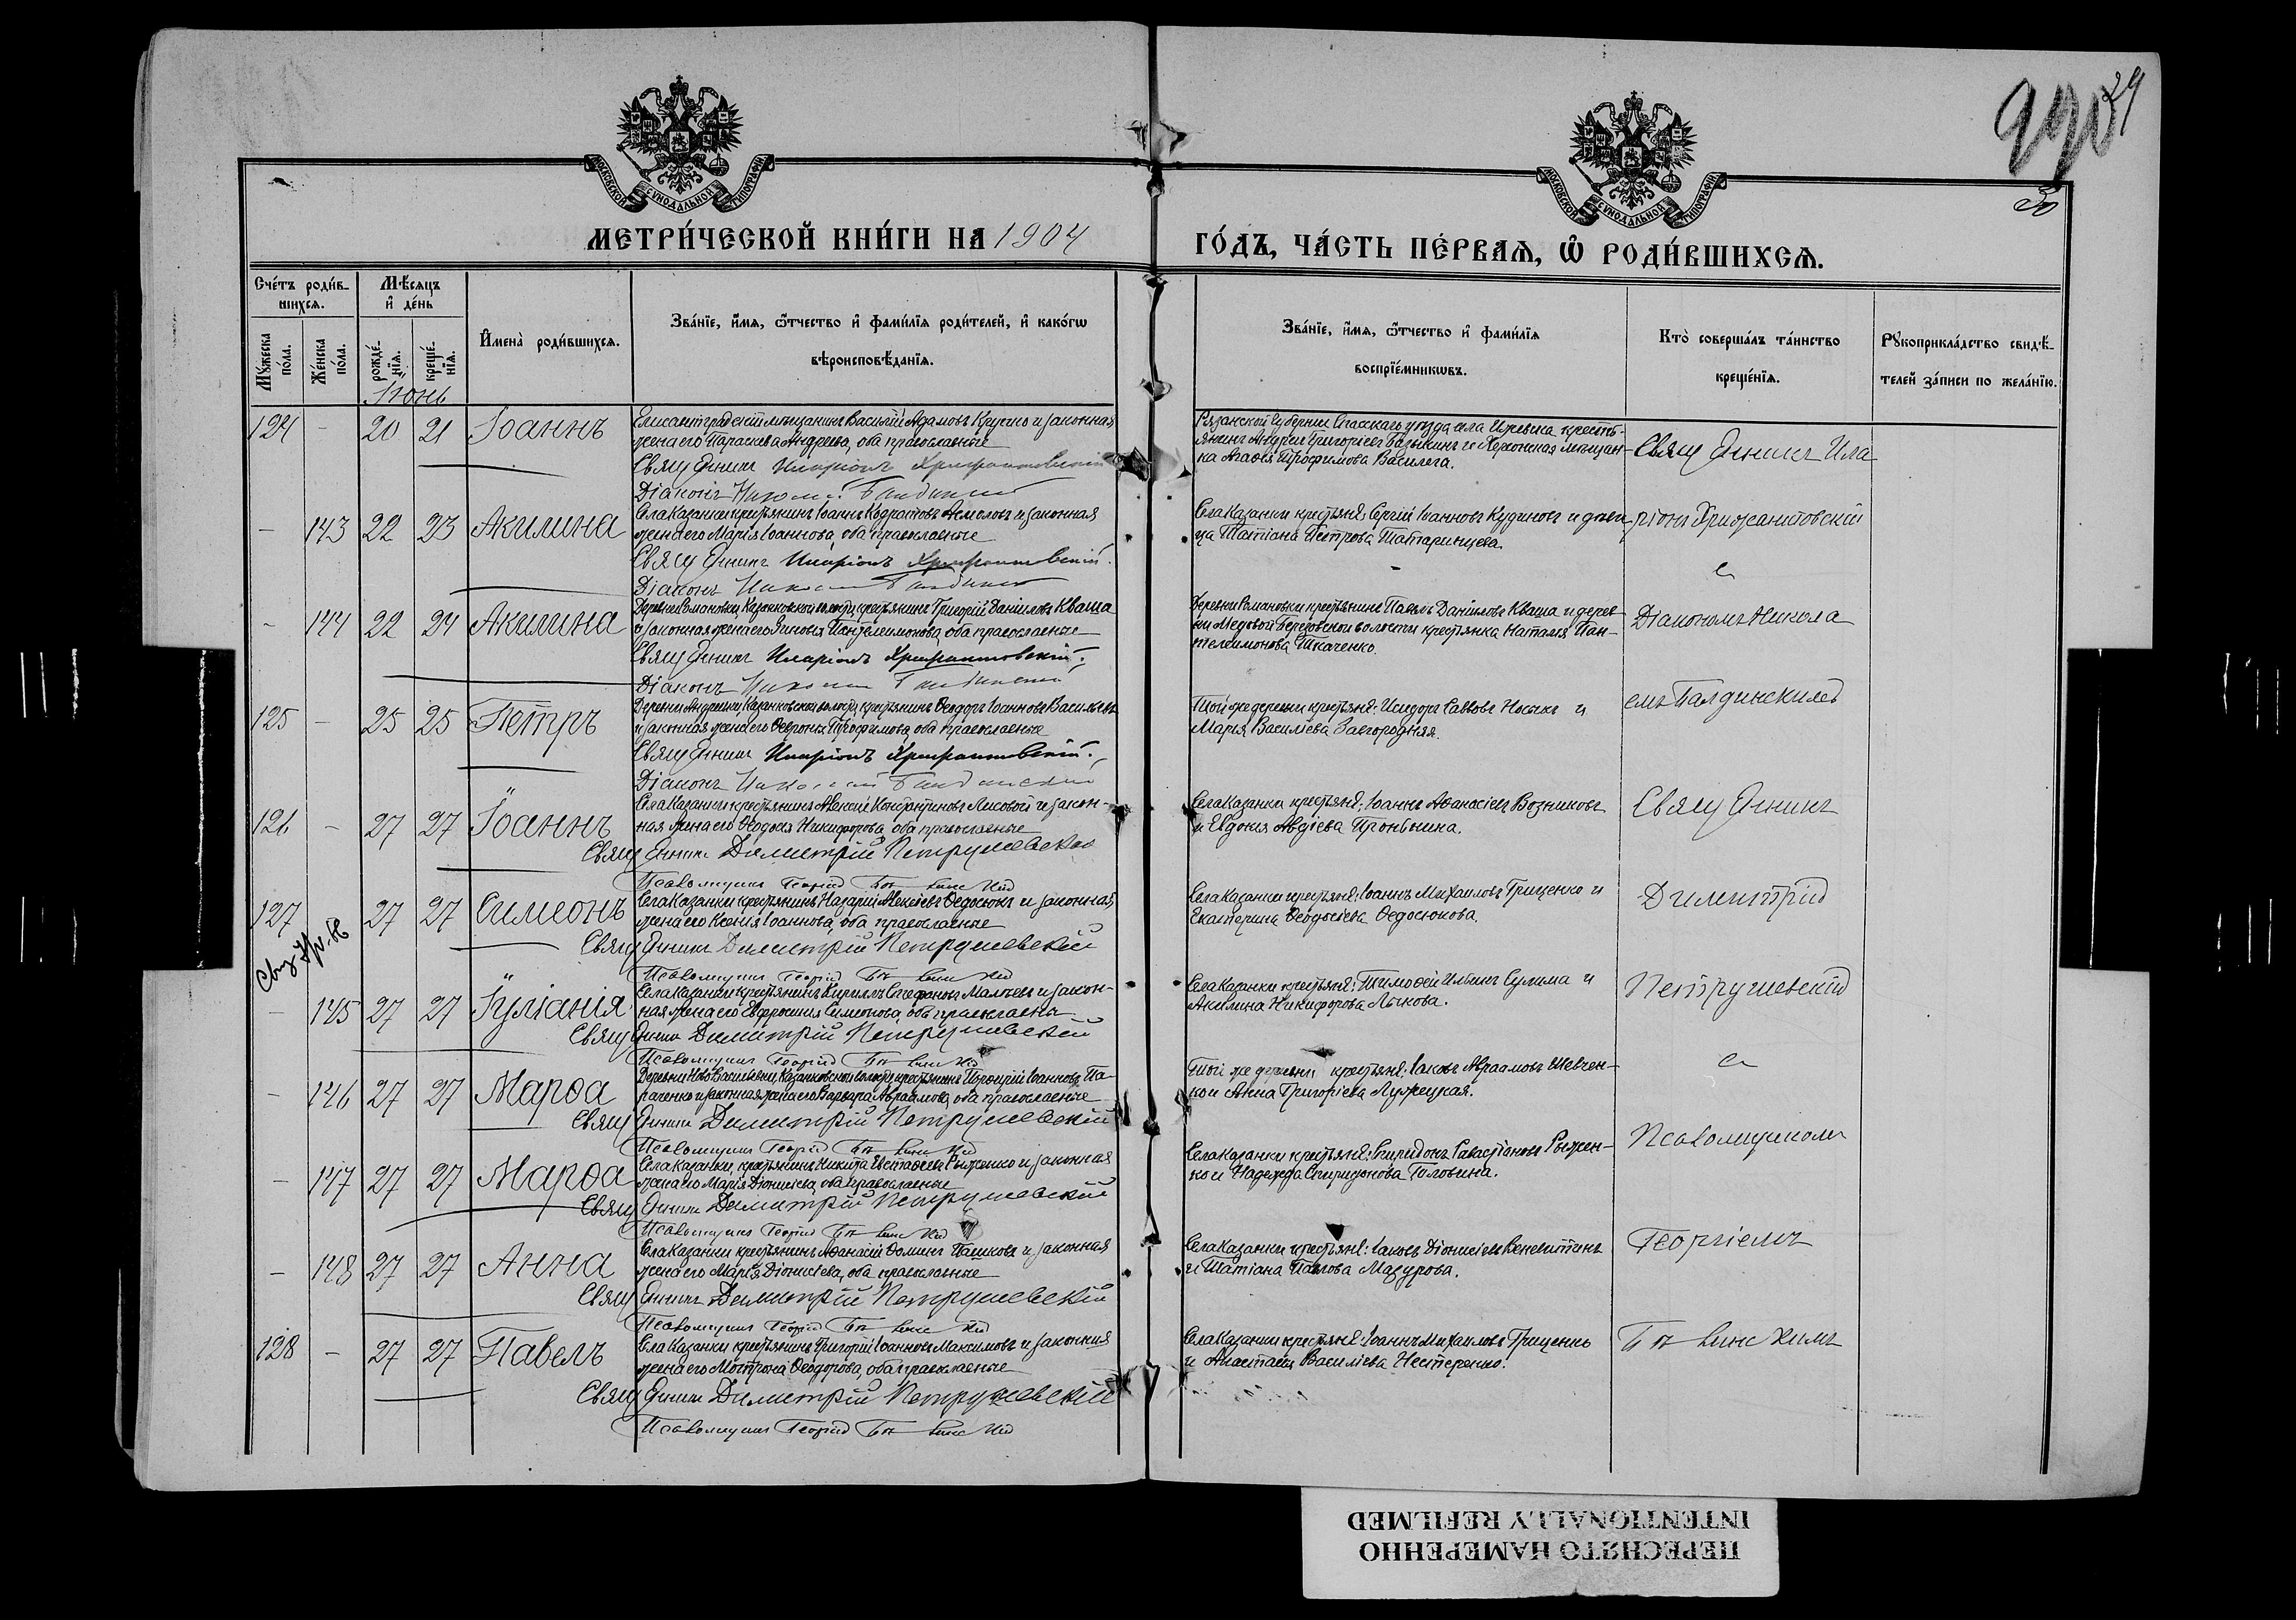 29
30
МОСКОВСКОЙ СѴНОДАЛЬНОЙ ТИПОГРАФІИ
МОСКОВСКОЙ СѴНОДАЛЬНОЙ ТИПОГРАФІИ
МЕТРИ́ЧЕСКОЙ КНИ́ГИ НА 1904
ГО́ДЪ, ЧА́СТЬ ПЕ́РВАѦ, Ѡ РОДИ́ВШИХСѦ.
Сче́тъ роди́в-
шихсѧ.
Мѣ́сѧцъ
и҆ де́нь
Мꙋ́жеска
по́ла.
Же́нска
по́ла.
рожде́-
нїѧ.
креще́-
нїѧ.
И҆мена̀ роди́вшихсѧ.
Зва́нїе, и҆́мѧ, ѻ҆́тчество и҆ фами́лїѧ роди́телей, и҆ како́гѡ
вѣроисповѣ́данїѧ.
Зва́нїе, и҆́мѧ, ѻ҆́тчество и҆ фами́лїѧ
воспрїе́мникѡвъ.
Кто̀ соверша́лъ та́инство
креще́нїѧ.
Рꙋкоприкла́дство свидѣ́-
телей за́писи по жела́нїю.
Іюнь
124 - 20 21 Іоаннъ
Елисаветградскій мѣщанинъ Василій Адамовъ и законная
жена его Параскева Андреева, оба православные
Священникъ Иларіонъ Хрисанфовскій
Діаконъ Николай
Рязанской губерніи Спасскаго уѣзда села крестьянинъ
Андрей Григоріевъ и Херсонская мѣщан-
ка Агафія Трофимова Василега.
Священникъ Ила
- 143 22 23 Акилина
Села Казанки крестьянинъ Іоаннъ и законная
жена его Марія Іоаннова, оба православные
Священникъ Иларіонъ Хрисанфовскій
Діаконъ Николай
Села Казанки крестьяне: Сергій Іоанновъ Кудиновъ и дѣви
ца Татіана Петрова Татаринцева.
ріонъ Хрисанфовскій
с
- 144 22 24 Акилина
Деревни Романовки Казанковской волости крестьянинъ Григорій Даніиловъ Кваша
и законная жена его Зиновія Пантелеимонова, оба православные
Священникъ Иларіонъ Хрисанфовскій
Діаконъ Николай
Деревни Романовки крестьянинъ Павелъ Даніиловъ Кваша и дерев-
ни волости крестьянка Наталія Пан-
телеимонова Ткаченко.
Діакономъ Никола
125 - 25 25 Петръ
Деревни Андреевки Казанковской волости крестьянинъ Ѳеодоръ Іоанновъ Васильевъ
и законная жена его Феврон. Трофимова, оба православные
Священникъ Иларіонъ Хрисанфовскій
Діаконъ Николай
Той же деревни крестьяне: Исидоръ Саввовъ Носыкъ и
Марія Василіева Завгородняя.
емъ Палдинскимъ
126 - 27 27 Іоаннъ
Села Казанки крестьянинъ Алексій Константиновъ Лисовой и закон-
ная жена его Ѳеодосія Никифорова, оба православные
Священникъ Димитрій Петрушевскій
Псаломщикъ Георгій
Села Казанки крестьяне: Іоаннъ Аѳанасіевъ Возниковъ
и Евдокія Авдіева Пронькина.
Священникъ
127 - 27 27 Симеонъ
Села Казанки крестьянинъ Назарій Алексіевъ Ѳедосюкъ и законная
жена его Ксенія Іоаннова, оба православные
Священникъ Димитрій Петрушевскій
Псаломщикъ Георгій
Села Казанки крестьяне: Іоаннъ Михаиловъ Гриценко и
Екатерина Ѳеодосіева Ѳедосюкова.
Димитрій
- 145 27 27 Іуліанія
Села Казанки крестьянинъ Кириллъ Стефановъ и закон-
ная жена его Евфросинія Симеонова, оба православны
Священникъ Димитрій Петрушевскій
Псаломщикъ Георгій
Села Казанки крестьяне: Тимоѳей Ильинъ Сулима и
Акилина Никифорова Лыкова.
Петрушевскій
с
- 146 27 27 Марѳа
Деревни Ново Васильевки, Казанковской волости крестьянинъ Порфирій Іоанновъ Па-
раченко и законная жена его Варвара Авраамова, оба православные
Священникъ Димитрій Петрушевскій
Псаломщикъ Георгій
Той же деревни крестьяне: Іаковъ Авраамовъ Шевчен-
ко и Анна Григоріева Лужецкая.
Псаломщикомъ
- 147 27 27 Марѳа
Села Казанки, крестьянинъ Никита Евстафіевъ Рыженко и законная
жена его Марія Діонисіева, оба православные
Священникъ Димитрій Петрушевскій
Псаломщикъ Георгій
Села Казанки крестьяне: Спиридонъ Савастіановъ Рыжен-
ко и Надежда Спиридонова Головина.
Георгіемъ
- 148 27 27 Анна
Села Казанки крестьянинъ Аѳанасій Ѳоминъ Пашковъ и законная
жена его Марія Діонисіева, оба православные
Священникъ Димитрій Петрушевскій
Псаломщикъ Георгій
Села Казанки крестьяне: Іаковъ Діонисіевъ Веневитинъ
и Татіана Павлова Мазурова.
128 - 27 27 Павелъ
Села Казанки крестьянинъ Григорій Іоанновъ Максимовъ и законная
жена его Матрона Ѳеодорова, оба православные
Священникъ Димитрій Петрушевскій
Псаломщикъ Георгій
Села Казанки крестьяне: Іоаннъ Михаиловъ Гриценко
и Анастасія Василіева Нестеренко.
ПЕРЕСНЯТО НАМЕРЕННО
INTENTIONALLY REFILMED